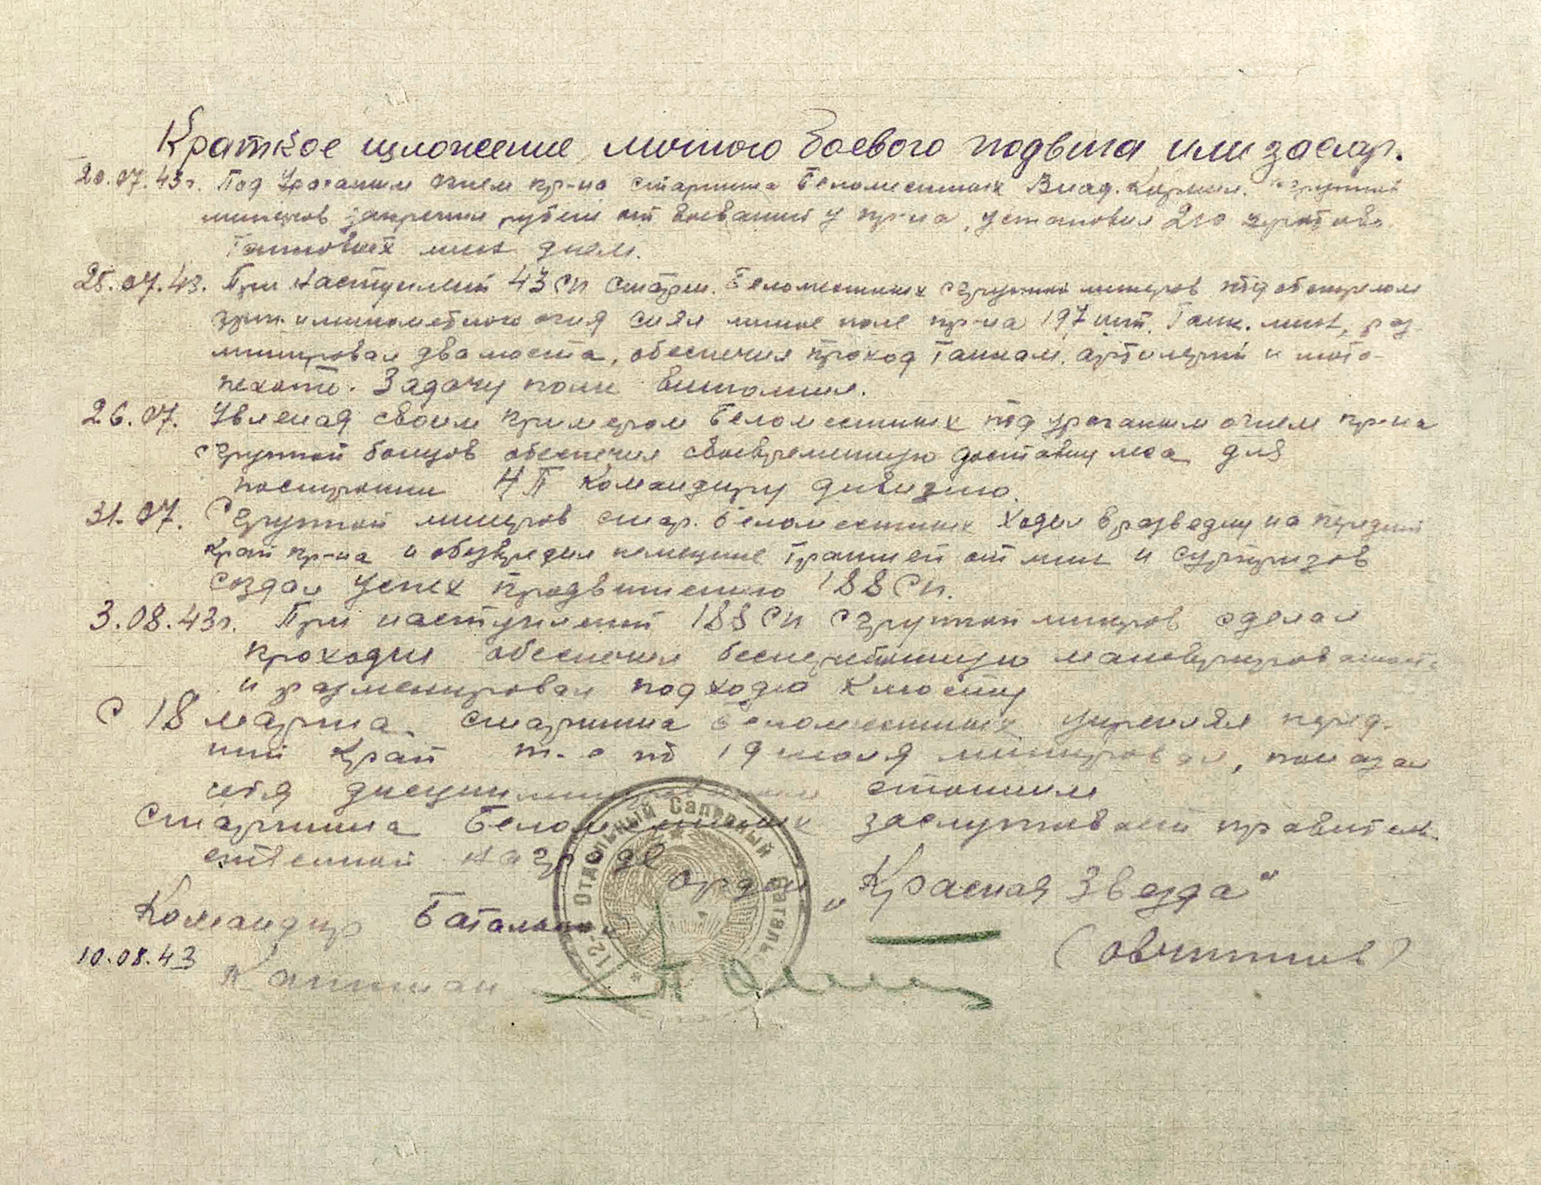 Краткое изложение личного боевого подвига или заслуг.
20.07.43г. Под ураганым огнем пр-ка старшина Беломестных Влад. Кирил. с групной
минеров закрепил рубеж отвоеваный у пр-ка, установил 200 противо
танковых мин днем.
25.07.43. При наступлений 43 СП старш. Беломестных с групной минеров под обстрелом
арт. и минометного огня снял минное поле пр-ка 197 шт. танк. мин, раз-
минировал два моста, обеспечил проход танкам, артилерий и мото-
пехоте. Задачу полн. выполнил.
26.07. Увлекая своим примером Беломестных под ураганым огнем пр-ка
с групной бойцов обеспечил своевременную доставку леса для
постройки НП командиру дивизию.
31.07. С групной минеров стар. Беломестных ходил в разведку на передний
край пр-ка и обезвредил немецкие траншей от мин и сурпризов
создал успех продвижению 188 СП.
3.08.43г. При наступлений 188 СП с групной минеров сделал
проходы обеспечил бесперебойную
и разменировал подхода к мосту
С 18 марта старшина Беломестных укреплял перед-
ний край т.е по 19 июля минировал, показал
себя стойким
Старшина Беломестных заслуживает правитель-
ственной награде
орден „Красная Звезда"
Командир Баталиона
(Овчинников)
10.08.43
Капитан
12-й Отдельный Саперный Баталь